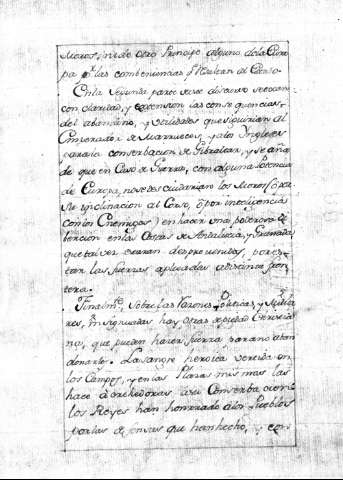 Moros, ni de otro Principe alguno de la Euro
pa pr. las combenuncias q. resultan al Cetro.
En la Segunda parte de este discurso se tocan
con claridad, y extension las consequencias
del abandono, y utilidades que siguirian al
Emperador de Marruecos, y a los Yngleses
para la conserbacion de Gibraltar, y se aña
de que en Caso de Guerra, con alguna Potencia
de Europa, nos este cuidarian los Moros (ó pr.
su inclinacion al Corso, ó por inteligencia
con los Enemigos) en hacer una poderosa di
bercion en las Costas de Andalucia, y Granada
que tal vez estaran desprevenidas, por es-
tar las fuerzas aplicadas a distinta fron
tera.
Finalmte., sobre las razones politicas, y Milita
res, insignuadas hay otras de piedad
que pueden hacer fuerza para no aban
donarlo. La sangre heroica vertida en
los Campos, y en las Plazas mismas las
hace acrehedoras a su Conserbacion:
los Reyes han honrrado a los Pueblos
por las defensas que han hecho, y con